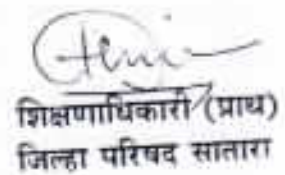 शिक्षणाधिकारी (प्राथ)
जिल्हा परिषद सातारा